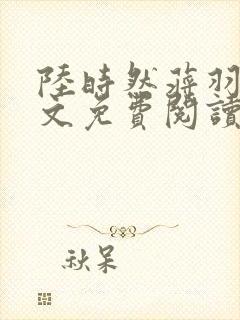 陸時然蔣羽
文免費閱讀
秋呆